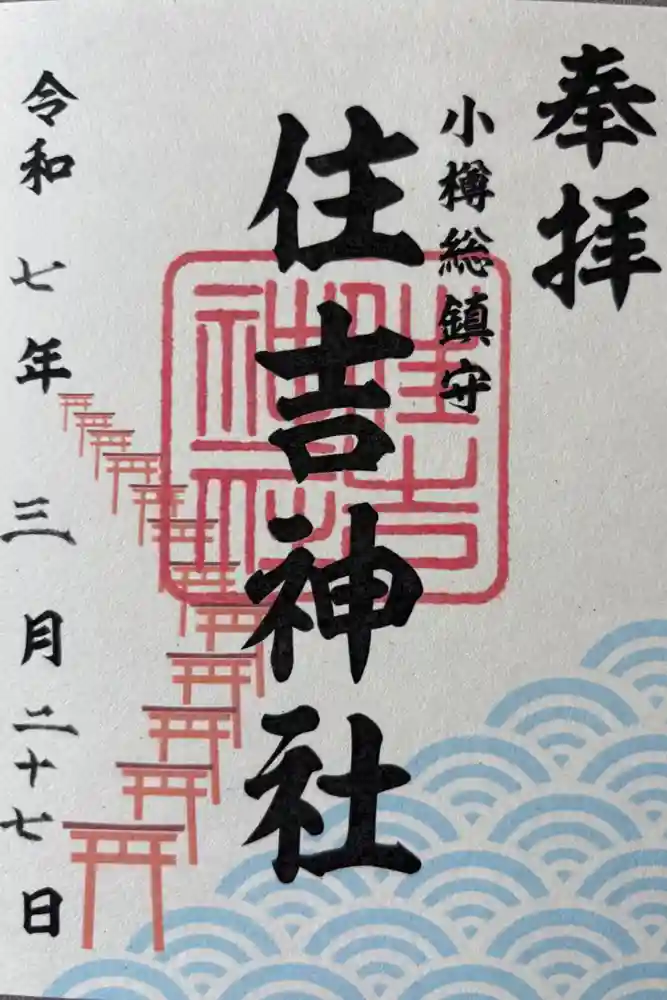 奉拝
小樽総鎮守
住吉神社
住吉
神社
令和七年三月二十七日